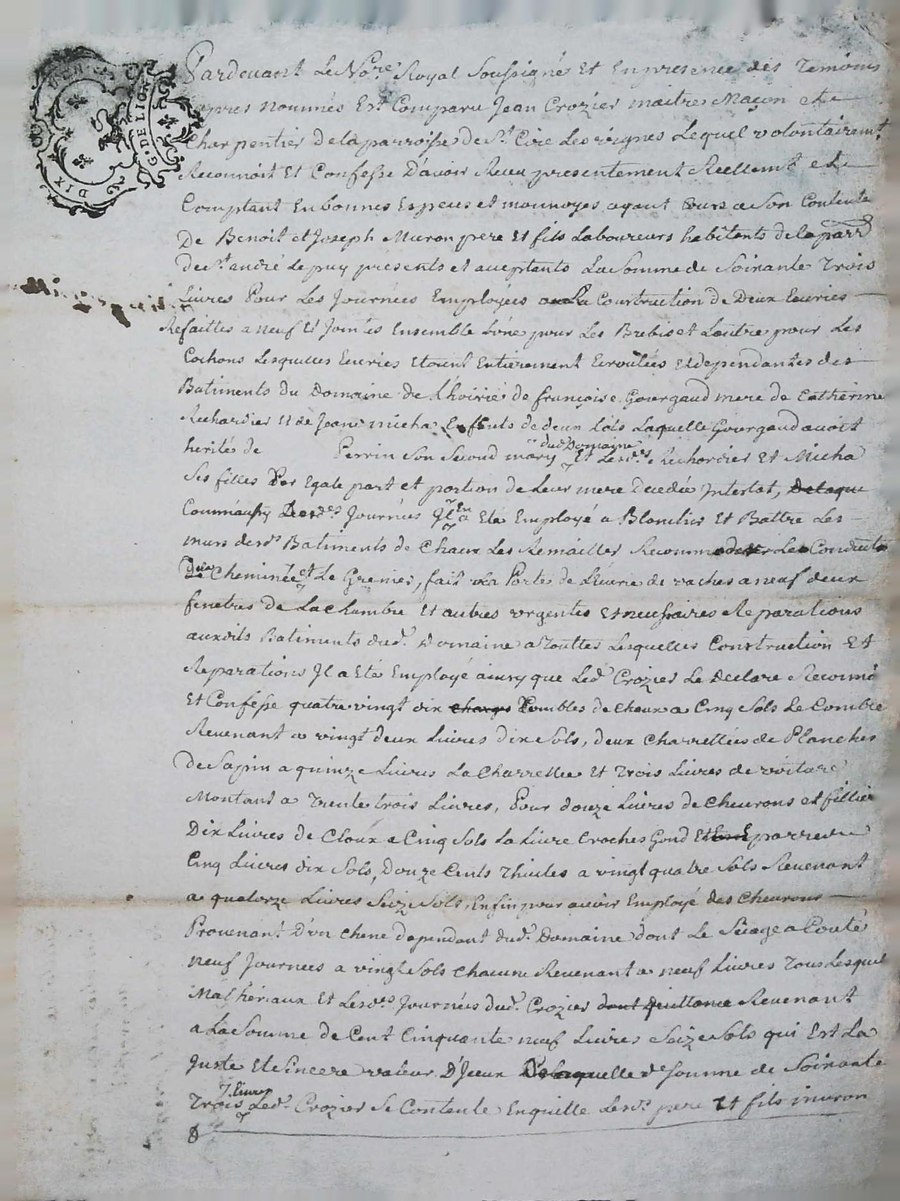 DIX DEN. G. DE LION
Pardevant Le No.re Royal Soussigné Et En presence des Temoins
apres nommés Est Comparu Jean Crozier maitre Maçon et
Charpentier de la parroisse de St. Cire Les vignes Lequel volontairem.t
Reconnoit Et Confesse D'avoir Receu presentement Reellem.t et
Comptant En bonnes Especes et monnoyes ayant Cours a Son Contente
De Benoit et Joseph Muron pere Et fils Laboureurs habitants de la parr.
de St. andré Le puy presents et aceptants La Somme de Soixante Trois
Livres Pour Les Journées Employées a La Construction de Deux Ecuries
Refaittes a neuf Et Jointes Ensemble L'une pour Les Brebis et L'autre pour Les
Cochons Lesquelles Ecuries Etoient Entierement Ecroulées Et dependantes des
Batiments du Domaine de L'hoirie de françoise Gourgaud mere de Catherine
Richardier Et de Jeane micha Enfents de deux Lots Laquelle Gourgaud avoit
herité de Perrin Son Second mary dud. Domaine Et Lesd.es Richardier Et Micha
Ses filles Par Egale part et portion de Leur mere decedée Intestat, Delaqu
Comme aussy Desd.es Journées Il En a Eté Employé a Blanchir Et Battre Les
murs desd.s Batiments de Chaux Les Remailler Recommoder Les Conduits
de la Cheminée et Le Grenier, fait La Porte de L'Ecurie de vaches a neuf deux
fenetres de La Chambre Et autres urgentes Et necessaires Reparations
auxdits Batiments dud. Domaine a Touttes Lesquelles Construction Et
Reparations Il a Eté Employé ainsy que Led. Crozier Le Declare Reconnoit
Et Confesse quatre vingt dix charges Combles de Chaux a Cinq Sols Le Comble
Revenant a vingt deux Livres dix Sols, deux Charrettées de Planches
de Sapin a quinze Livres La Charrettée Et Trois Livres de voiture
Montant a Trente trois Livres, Pour douze Livres de Chevrons et fillier
Dix Livres de Cloux a Cinq Sols La Livre Croches Gond Et Eparre
Cinq Livres dix Sols, Douze Cents Thuiles a vingt quatre Sols Revenant
a quatorze Livres Seize Sols, Enfin pour avoir Employé des Chevrons
Provenant D'un Chene dependant dud. Domaine dont Le Siage a Couté
neuf Journées a vingt Sols chacune Revenant a neuf Livres Tous Lesquels
Mathériaux Et Lesd.es Journées dud. Crozier dont Quittance Revenant
a La Somme de Cent Cinquante neuf Livres Seize Sols qui Est La
Juste Et Sincere valeur D'Iceux De laquelle de Somme de Soixante
Trois Livres Led. Crozier Se Contente En quitte Lesd.s pere Et fils muron